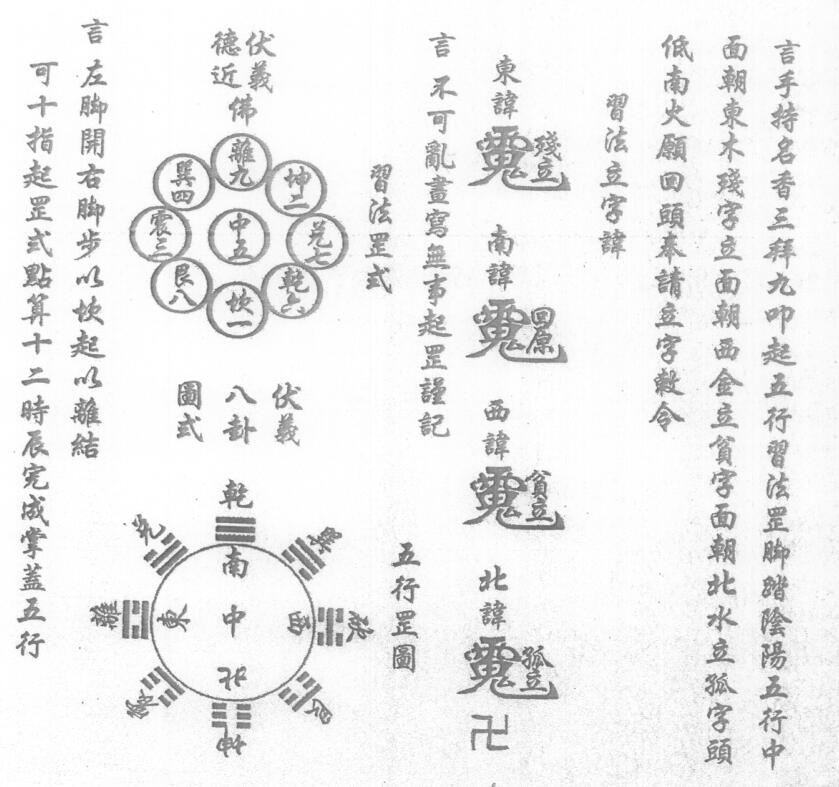 言手持名香三拜九叩起五行習法罡脚踏陰陽五行中
面朝東木殘字立面朝西金立貧字面朝北水立孤字頭
低南火願回頭奉請立字敕令
習法立字諱
東諱
殘立
南諱
回原
西諱
貧立
北諱
孤立
卍
言不可亂畫寫無事起罡謹記
習法罡式
伏羲
德近
佛
離九
坤二
兌七
乾六
坎一
艮八
震三
巽四
中五
五行罡圖
伏羲
八卦
圖式
乾
巽
坎
艮
坤
震
離
兌
南
東
中
西
北
言左脚開右脚步以坎起以離結
可十指起罡式點算十二時辰完成掌蓋五行